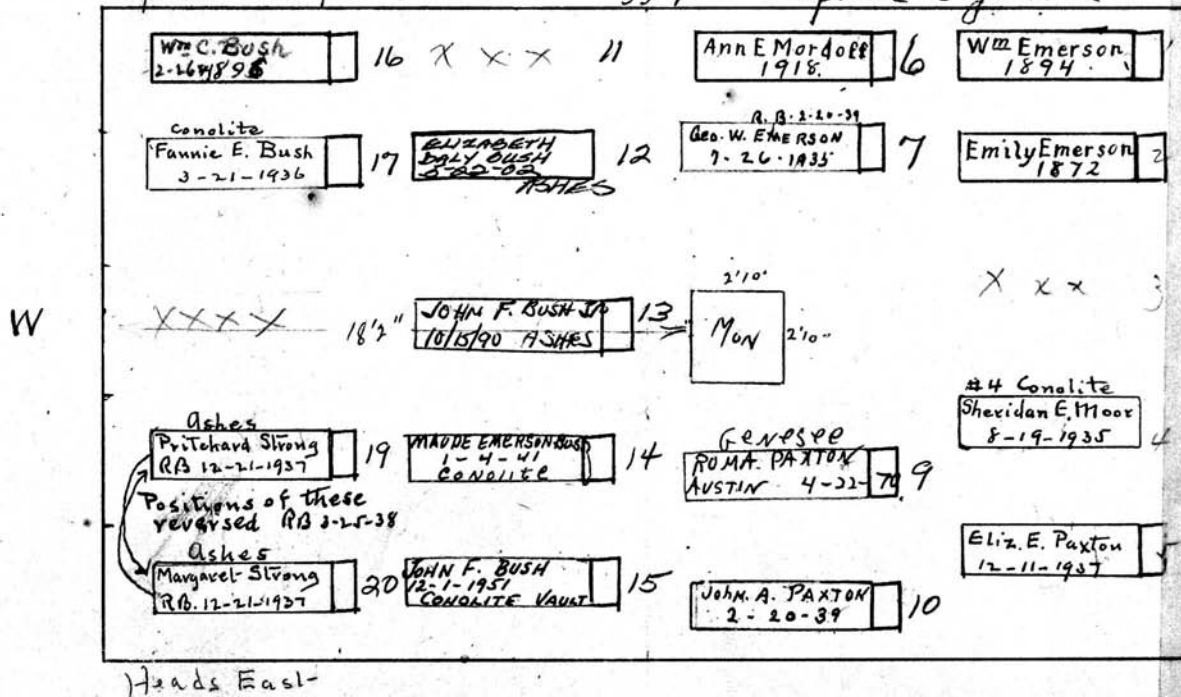 Wm C. Bush
16
X X X
11
Ann E Mordoff
1918.
6
Wm Emerson
1894.
Conolite
Fannie E. Bush
3-21-1936
17
ELIZABETH
DALY BUSH
5-22-02
ASHES
12
R.B. 2-20-39
Geo. W. EMERSON
7-26-1935
7
Emily Emerson
1872
2
W
XXXX
18'2"
JOHN F. BUSH JR
10/15/90 ASHES
13
2'10"
MON
2'10"
X x x
3
Ashes
Pritchard Strong
RB 12-21-1937
19
MAUDE EMERSON BUSH
1-4-41
CONOLITE
14
Genesee
ROMA. PAXTON
AUSTIN 4-22-70
9
#4 Conolite
Sheridan E. Moor
8-19-1935
4
Positions of these
reversed RB 3-25-38
Ashes
Margaret Strong
RB. 12-21-1937
20
JOHN F. BUSH
12-1-1951
CONOLITE VAULT
15
John. A. PAXTON
2-20-39
10
Eliz. E. Paxton
12-11-1937
Heads East